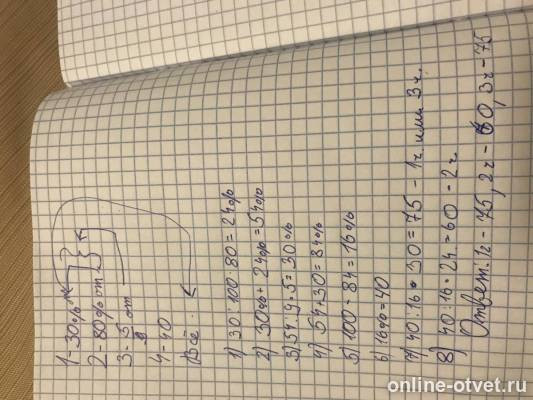 1-30%
2-80% от
3-5/9 от
4-40
Все
1) 30:100·80=24%
2) 30%+24%=54%
3) 54:9·5=30%
4) 54+30=84%
5) 100-84=16%
6) 16%=40
7) 40:16·30=75-1ч. или 3ч.
8) 40:16·24=60-2ч
Ответ: 1ч-75, 2ч-60, 3ч-75
online-otvet.ru